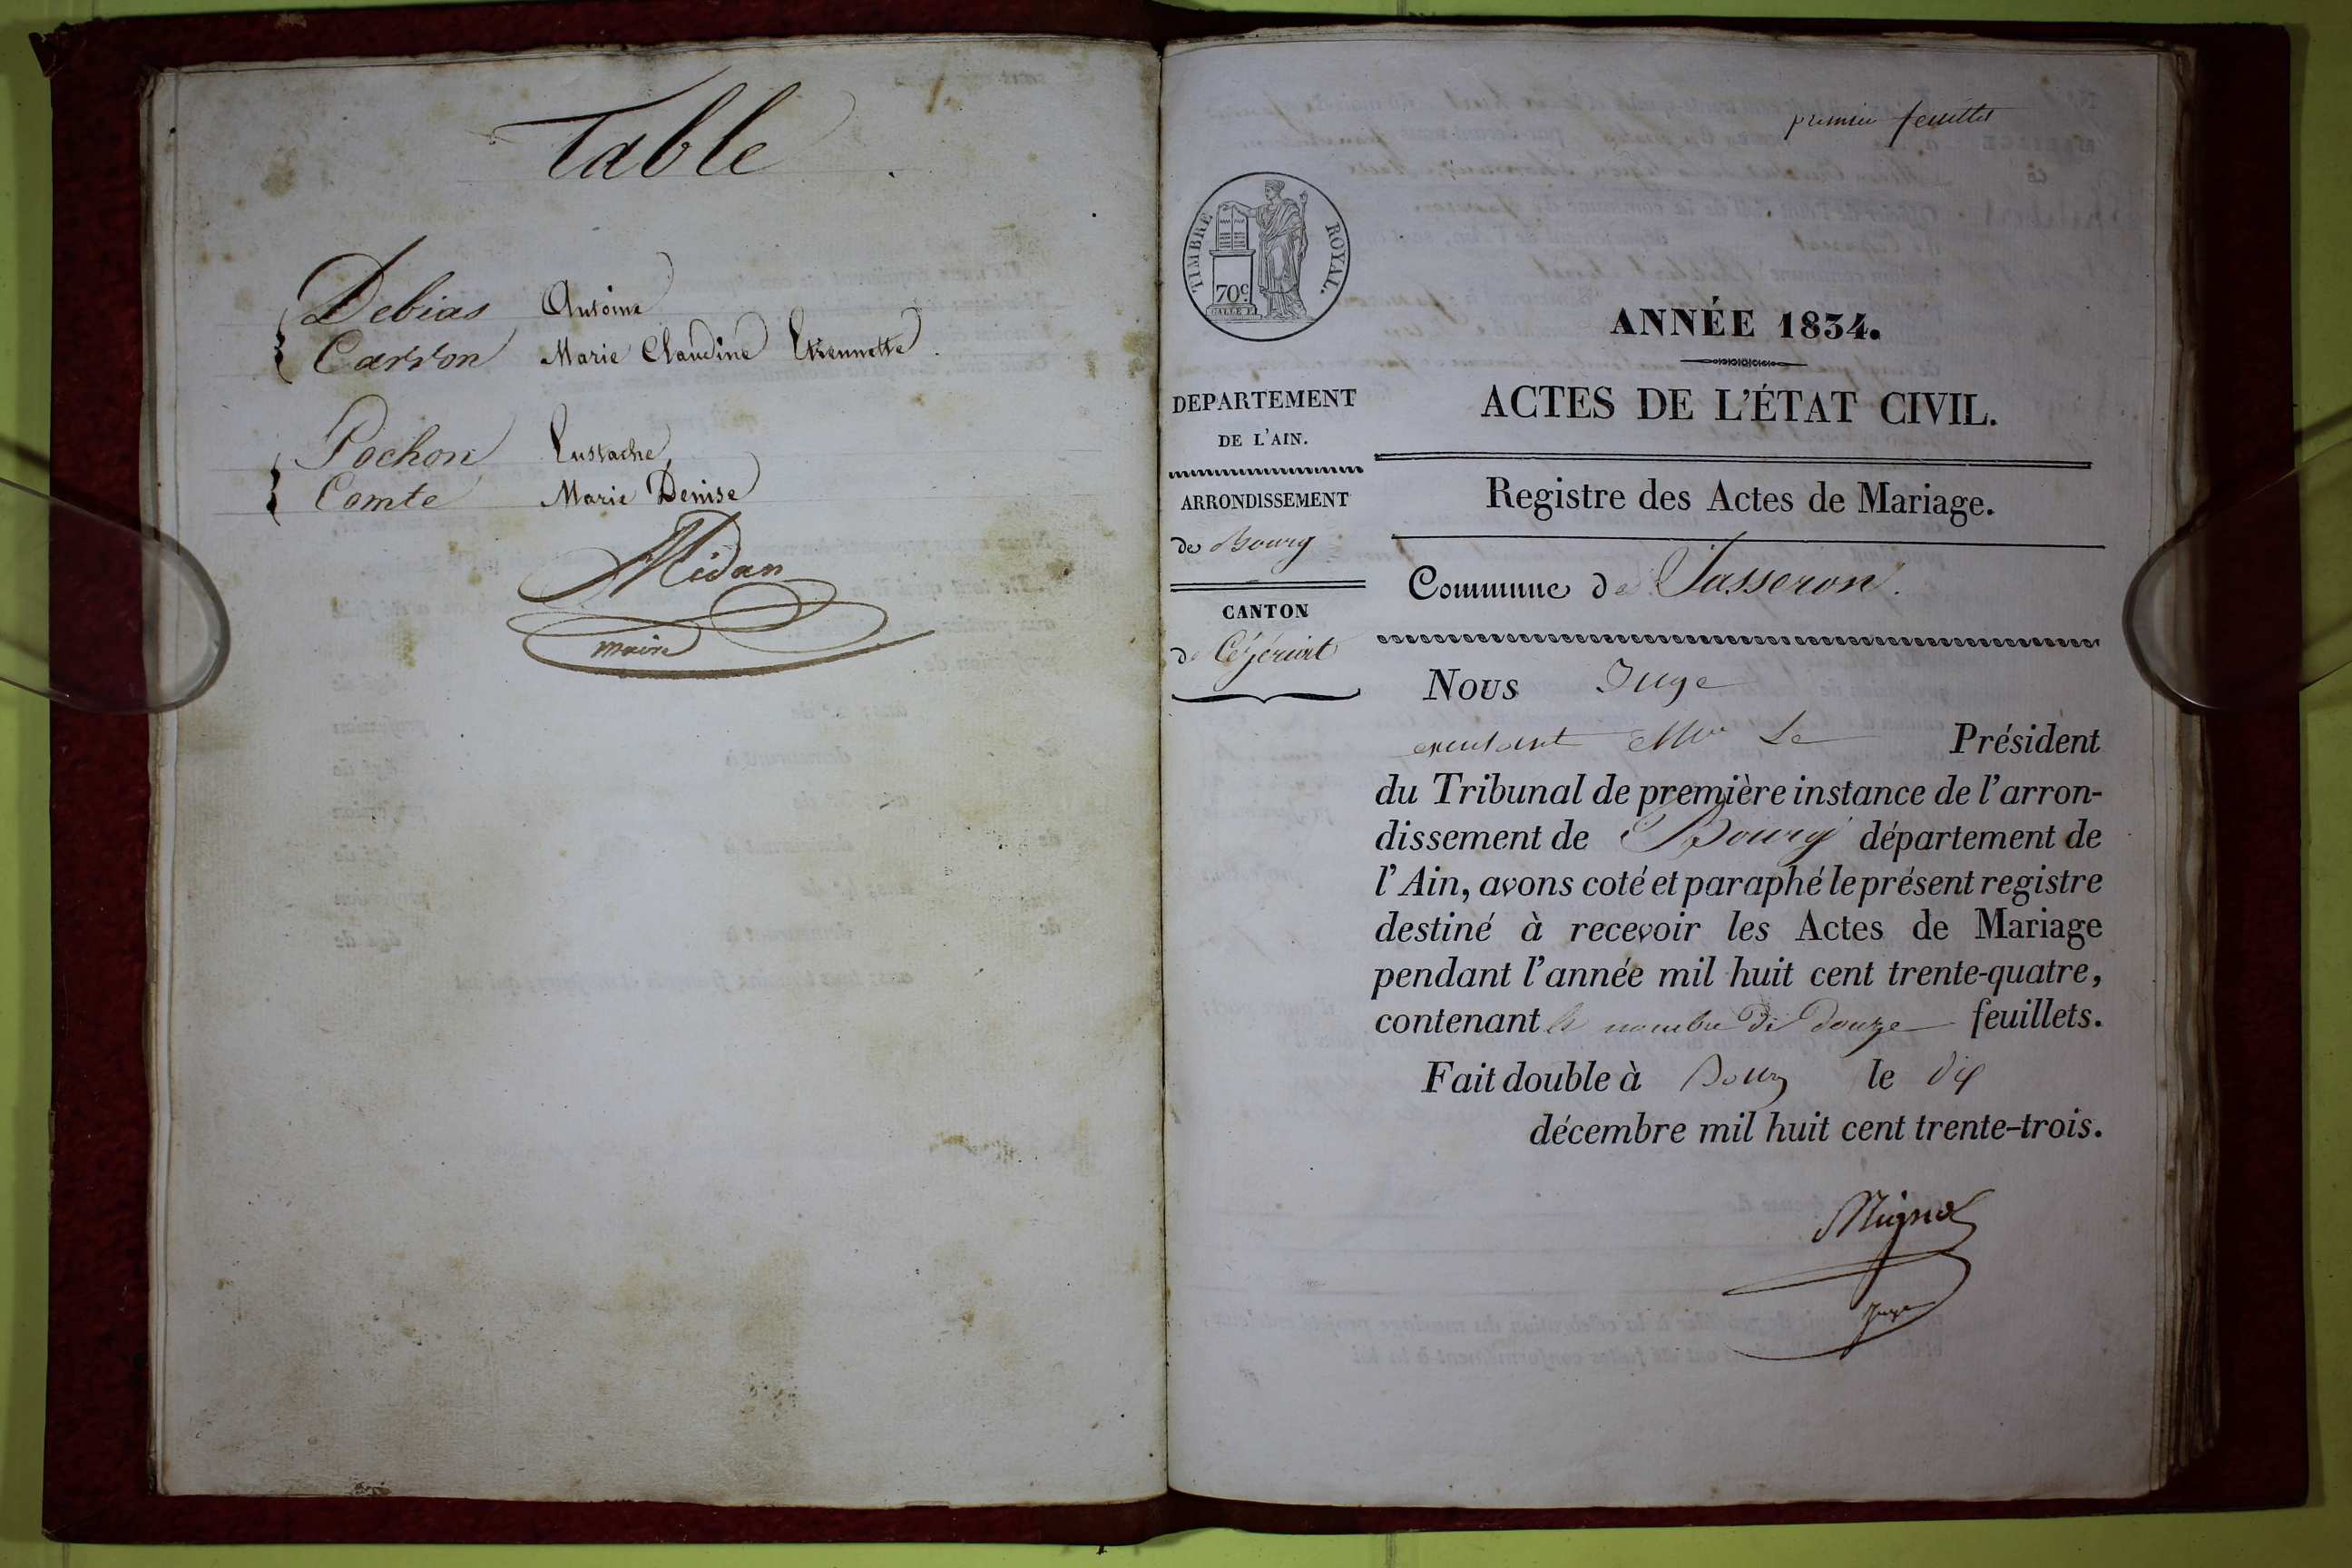 Table
Debias Antoine
Carron Marie Claudine Etiennette.
Pochon Eustache
Comte Marie Denise
Midan
maire
premier feuillet
TIMBRE ROYAL.
70c
ANNÉE 1834.
DEPARTEMENT
DE L'AIN.
ACTES DE L'ÉTAT CIVIL.
ARRONDISSEMENT
de Bourg
Registre des Actes de Mariage.
CANTON
de Cézériat
Commune de Jasseron.
Nous Juge
Le Président
du Tribunal de première instance de l'arron-
dissement de Bourg département de
l'Ain, avons coté et paraphé le présent registre
destiné à recevoir les Actes de Mariage
pendant l'année mil huit cent trente-quatre,
contenant le nombre de douze feuillets.
Fait double à Bourg le dix
décembre mil huit cent trente-trois.
Juge